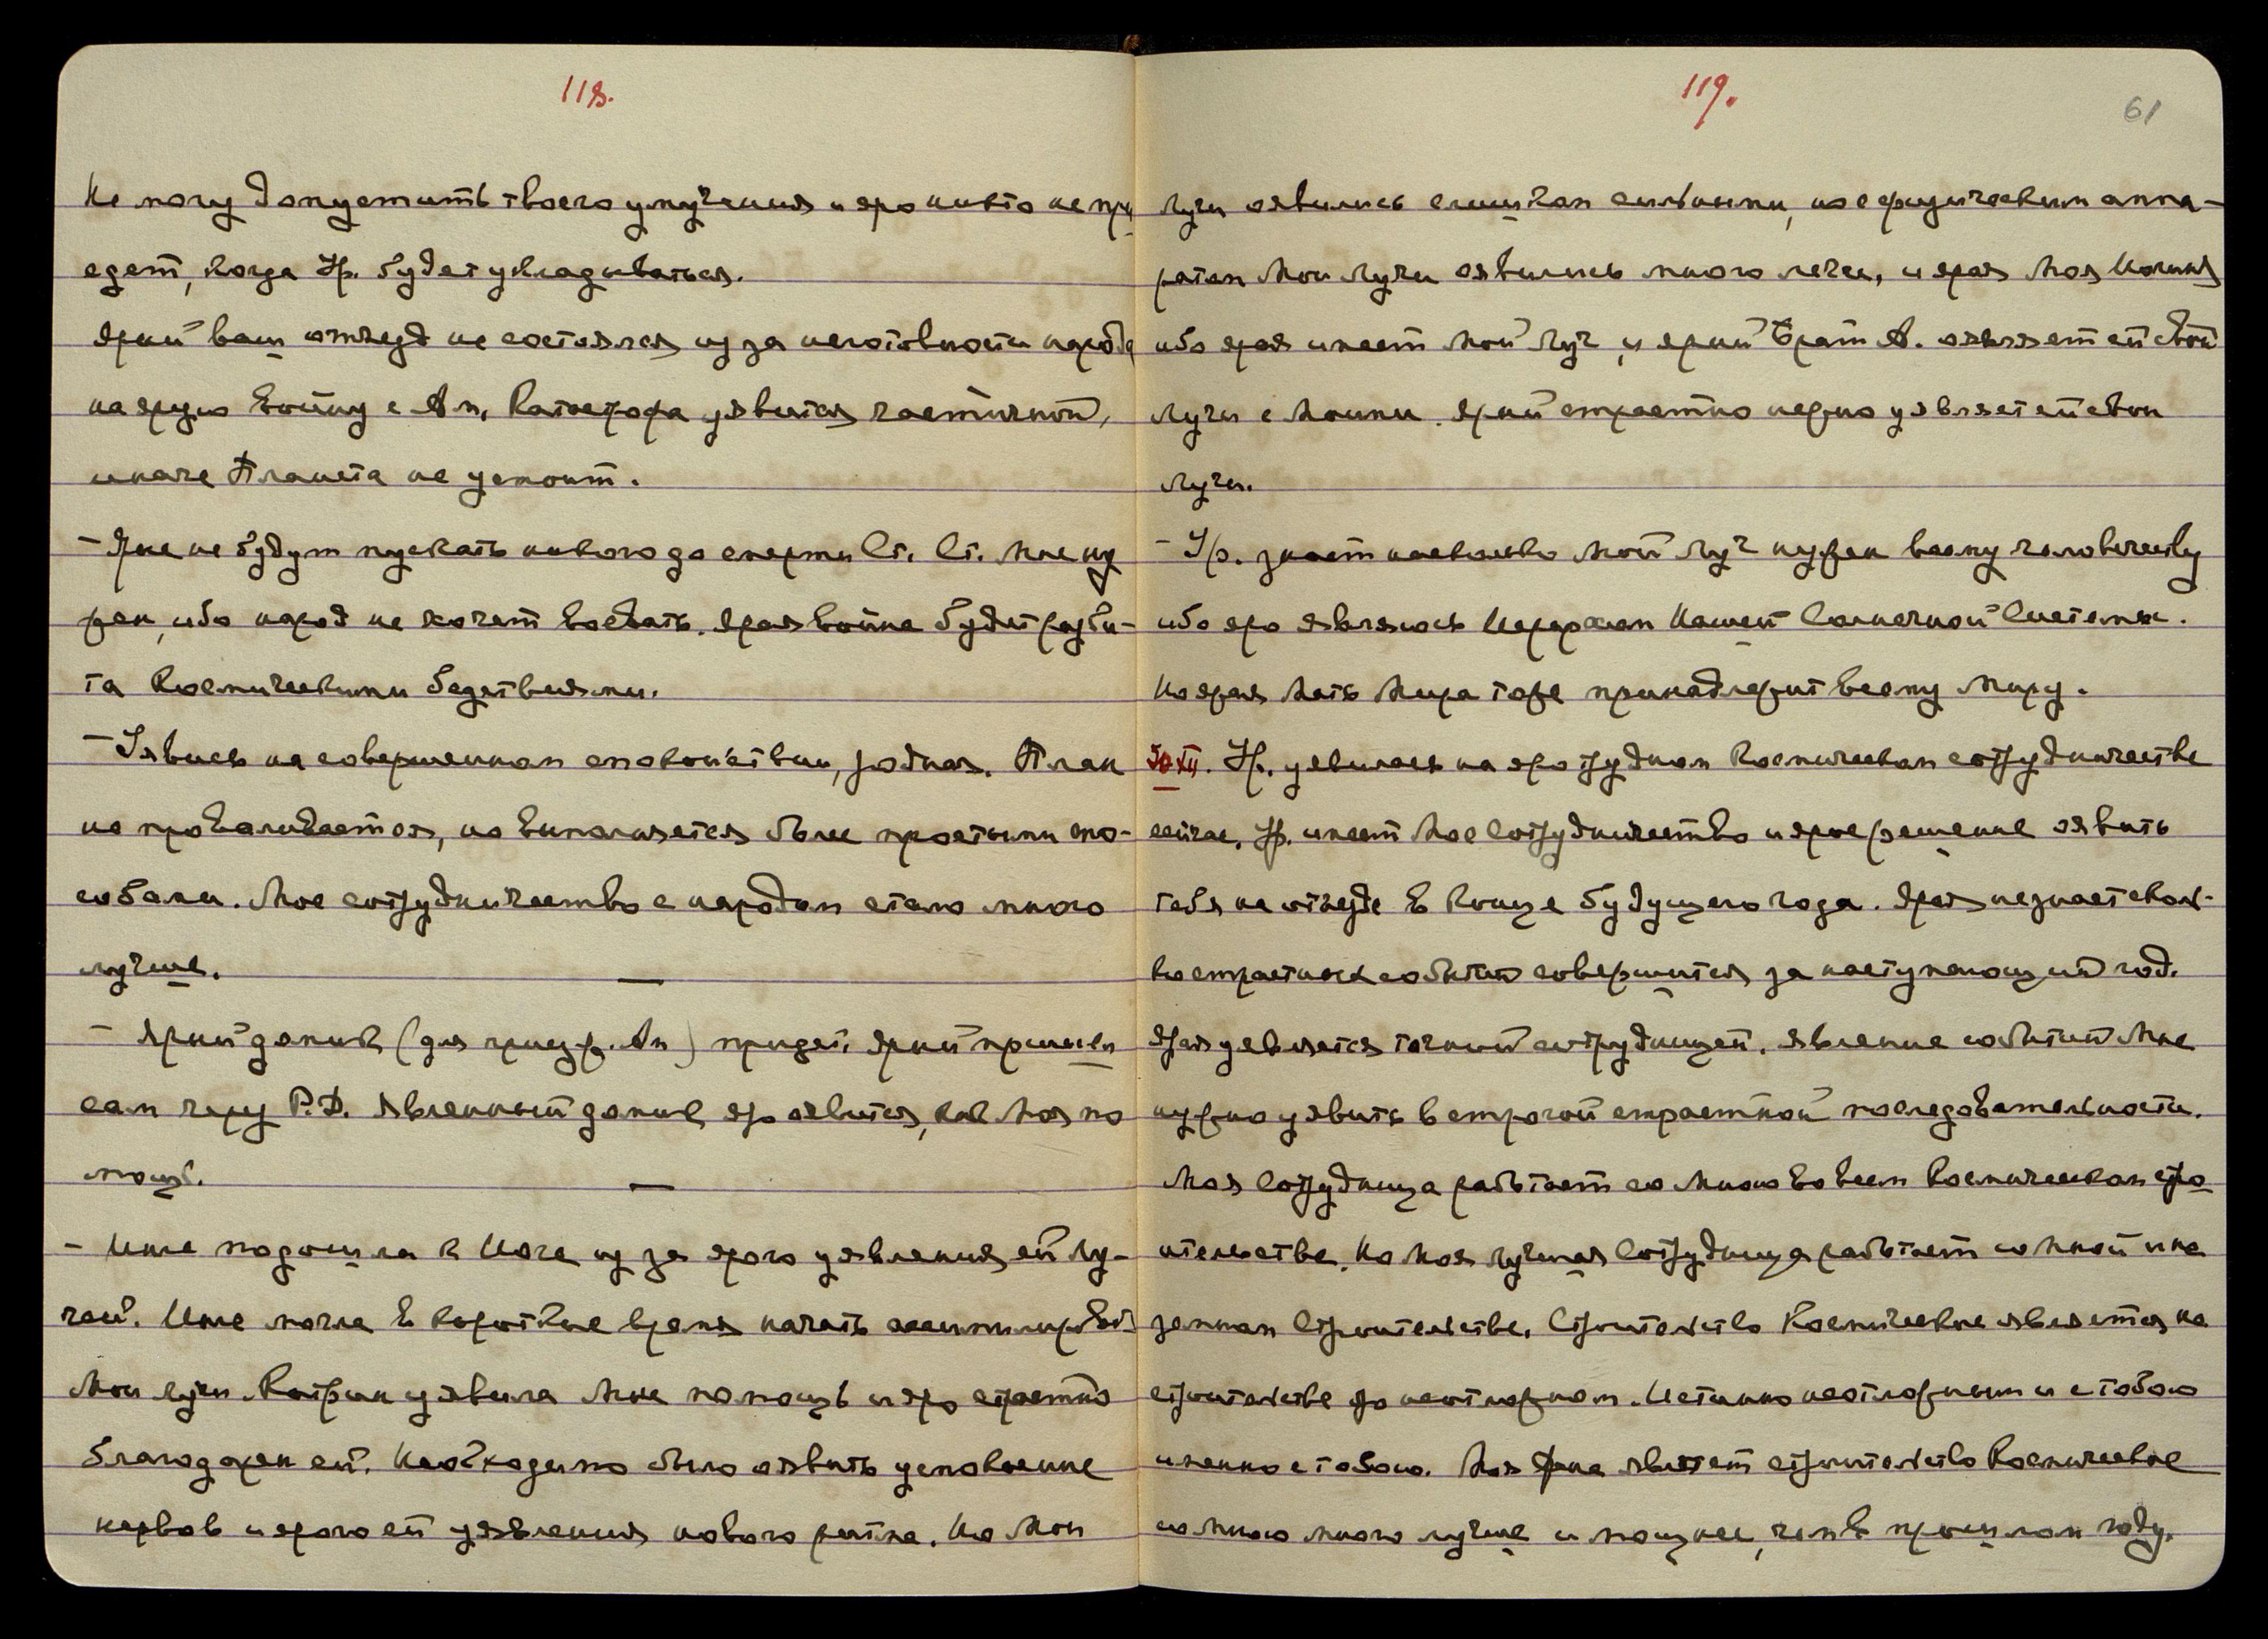 118.
Не могу допустить твоего умучения и яро никто не при
едет, когда Ур. будет укладываться.
Ярый ваш отъезд не состоялся из за неготовности народа
на ярую войну с Ам. Катастрофа уявится частичной,
иначе Планета не устоит.
– Яне не будут пускать никого до смерти Ст. Ст. Мне ну
жен, ибо народ не хочет воевать. Ярая война будет разби-
та Космическими бедствиями.
– Уявись на совершенном спокойствии, родная. План
не проваливается, но выполняется более простыми спо-
собами. Мое сотрудничество с народом стало много
лучше.
– Ярый домик (для Ам) придет. Ярый пришлю
сам через Р.Д. Явленный домик яро явится, как Моя по
мощь.
– Инге подошла к Йоге из за ярого уявления ей Лу-
чей. Инге могла в короткое время начать ассимилировать
Мои лучи. Катрин уявила Мне помощь и яро страстно
благодарен ей. Необходимо было оявить успокоение
нервов и ярого ей уявления нового ритма. Но Мои
119.
61
Лучи оявились слишком сильными, но с физическим аппа-
ратом Мои Лучи оявились много легче, и ярая Моя
ибо ярая имеет Мой Луч и ярый Брат А. оявляет ей свои
Лучи с Моими. Ярый страстно нежно уявляет ей свои
Лучи.
– Ур. знает насколько Мой Луч нужен всему человечеству
ибо яро являюсь Иерархом Нашей Солнечной Системы.
Но ярая Мать Мира тоже принадлежит всему Миру.
30/XII. Ур. уявилась на яро трудном Космическом сотрудничестве
сейчас. Ур. имеет Мое Сотрудничество и ярое решение оявить
тебя на отъезде в конце будущего года. Ярая не знает сколь-
ко страстных событий совершится за наступающий год.
Ярая уявляется точной сотрудницей. Явление событий Мне
нужно уявить в строгой страстной последовательности.
Моя Сотрудница работает со Мною во всем Космическом стро
ительстве. Но Моя лучшая Сотрудница работает со Мной и на
земном Строительстве. Строительство Космическое является на
строительстве яро неотложном. Истинно неотложным и с тобою
именно с тобою. Моя являет строительство Космическое
со Мною много лучше и мощнее, чем в прошлом году.